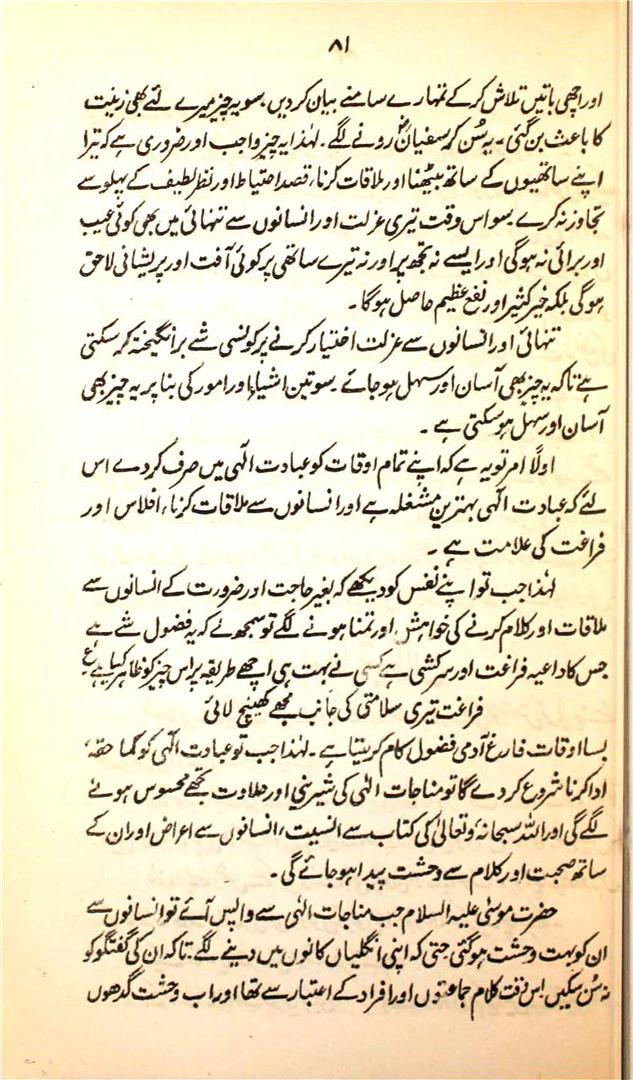 ۸۱
اور اچھی باتیں تلاش کر کے تمہارے سامنے بیان کر دیں۔ سو یہ چیز میرے لئے بھی زینت
کا باعث بن گئی۔ یہ سُن کر سفیانؒ رونے لگے۔ لہٰذا یہ چیز واجب اور ضروری ہے کہ تیرا
اپنے ساتھیوں کے ساتھ بیٹھنا اور ملاقات کرنا، قصد احتیاط اور نظر لطیف کے پہلو سے
تجاوز نہ کرے۔ سو اس وقت تیری عزلت اور انسانوں سے تنہائی میں بھی کوئی عیب
اور برائی نہ ہوگی اور ایسے نہ تجھ پر اور نہ تیرے ساتھی پر کوئی آفت اور پریشانی لاحق
ہوگی بلکہ خیر کثیر اور نفع عظیم حاصل ہوگا۔
تنہائی اور انسانوں سے عزلت اختیار کرنے پر کونسی شے برانگیختہ کر سکتی
ہے تاکہ یہ چیز بھی آسان اور سہل ہو جائے۔ سو تین اشیاء اور امور کی بنا پر یہ چیز بھی
آسان اور سہل ہو سکتی ہے۔
اولًا امر تو یہ ہے کہ اپنے تمام اوقات کو عبادت الٰہی میں صرف کر دے اس
لئے کہ عبادت الٰہی بہترین مشغلہ ہے اور انسانوں سے ملاقات کرنا، افلاس اور
فراغت کی علامت ہے۔
لہٰذا جب تو اپنے نفس کو دیکھے کہ بغیر حاجت اور ضرورت کے انسانوں سے
ملاقات اور کلام کرنے کی خواہش اور تمنا ہونے لگے تو سمجھ لے کہ یہ فضول شے ہے
جس کا داعیہ فراغت اور سرکشی ہے کسی نے بہت ہی اچھے طریقہ پر اس چیز کو ظاہر کیا ہے ؏
فراغت تیری سلامتی کی جانب مجھے کھینچ لائی
بسا اوقات فارغ آدمی فضول کام کر بیٹھتا ہے۔ لہٰذا جب تو عبادت الٰہی کو کما حقہٗ
ادا کرنا شروع کر دے گا تو مناجات الٰہی کی شیرینی اور حلاوت تجھے محسوس ہونے
لگے گی اور اللہ سبحانہٗ وتعالیٰ کی کتاب سے انسیت، انسانوں سے اعراض اور ان کے
ساتھ صحبت اور کلام سے وحشت پیدا ہو جائے گی۔
حضرت موسیٰ علیہ السلام جب مناجات الٰہی سے واپس آئے تو انسانوں سے
ان کو بہت وحشت ہو گئی حتیٰ کہ اپنی انگلیاں کانوں میں دینے لگے۔ تاکہ ان کی گفتگو کو
نہ سُن سکیں اس وقت کلام جماعتوں اور افراد کے اعتبار سے تھا اور اب وحشت گدھوں